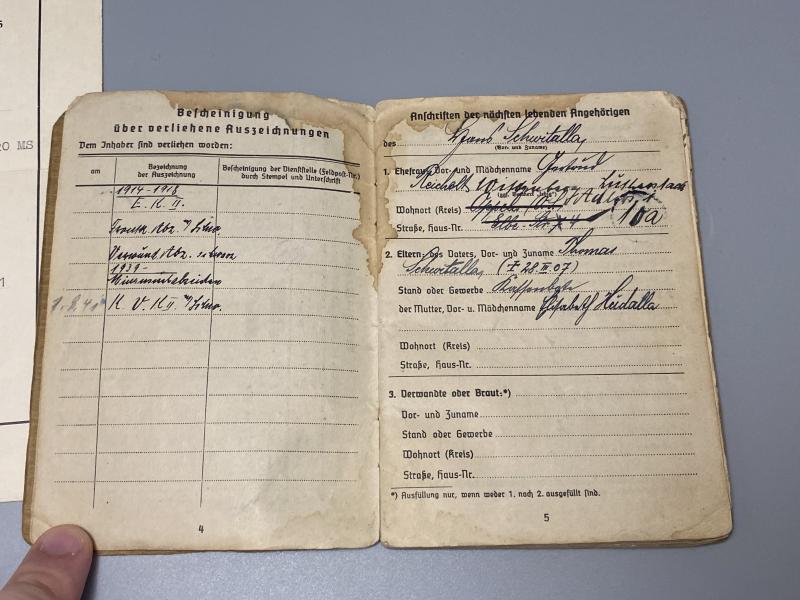 5
0 MS
1
Bescheinigung
über verliehene Auszeichnungen
Dem Inhaber sind verliehen worden:
am
Bezeichnung
der Auszeichnung
Bescheinigung der Dienststelle (Feldpost-Nr.)
durch Stempel und Unterschrift
1914-1918
E. K. II.
Abz.
Abz.
1939-
K. V. K. II.
4
Anschriften der nächsten lebenden Angehörigen
des Hans Schwitalla
(Vor- und Zuname)
1. Ehefrau: Vor- und Mädchenname Gertrud
Reichelt
Wohnort (Kreis)
Straße, Haus-Nr. Elbe-Str. 4 10a
2. Eltern: des Vaters, Vor- und Zuname Thomas
Schwitalla
Stand oder Gewerbe
der Mutter, Vor- u. Mädchenname Elisabeth
Wohnort (Kreis)
Straße, Haus-Nr.
3. Verwandte oder Braut:*)
Vor- und Zuname
Stand oder Gewerbe
Wohnort (Kreis)
Straße, Haus-Nr.
*) Ausfüllung nur, wenn weder 1. noch 2. ausgefüllt sind.
5